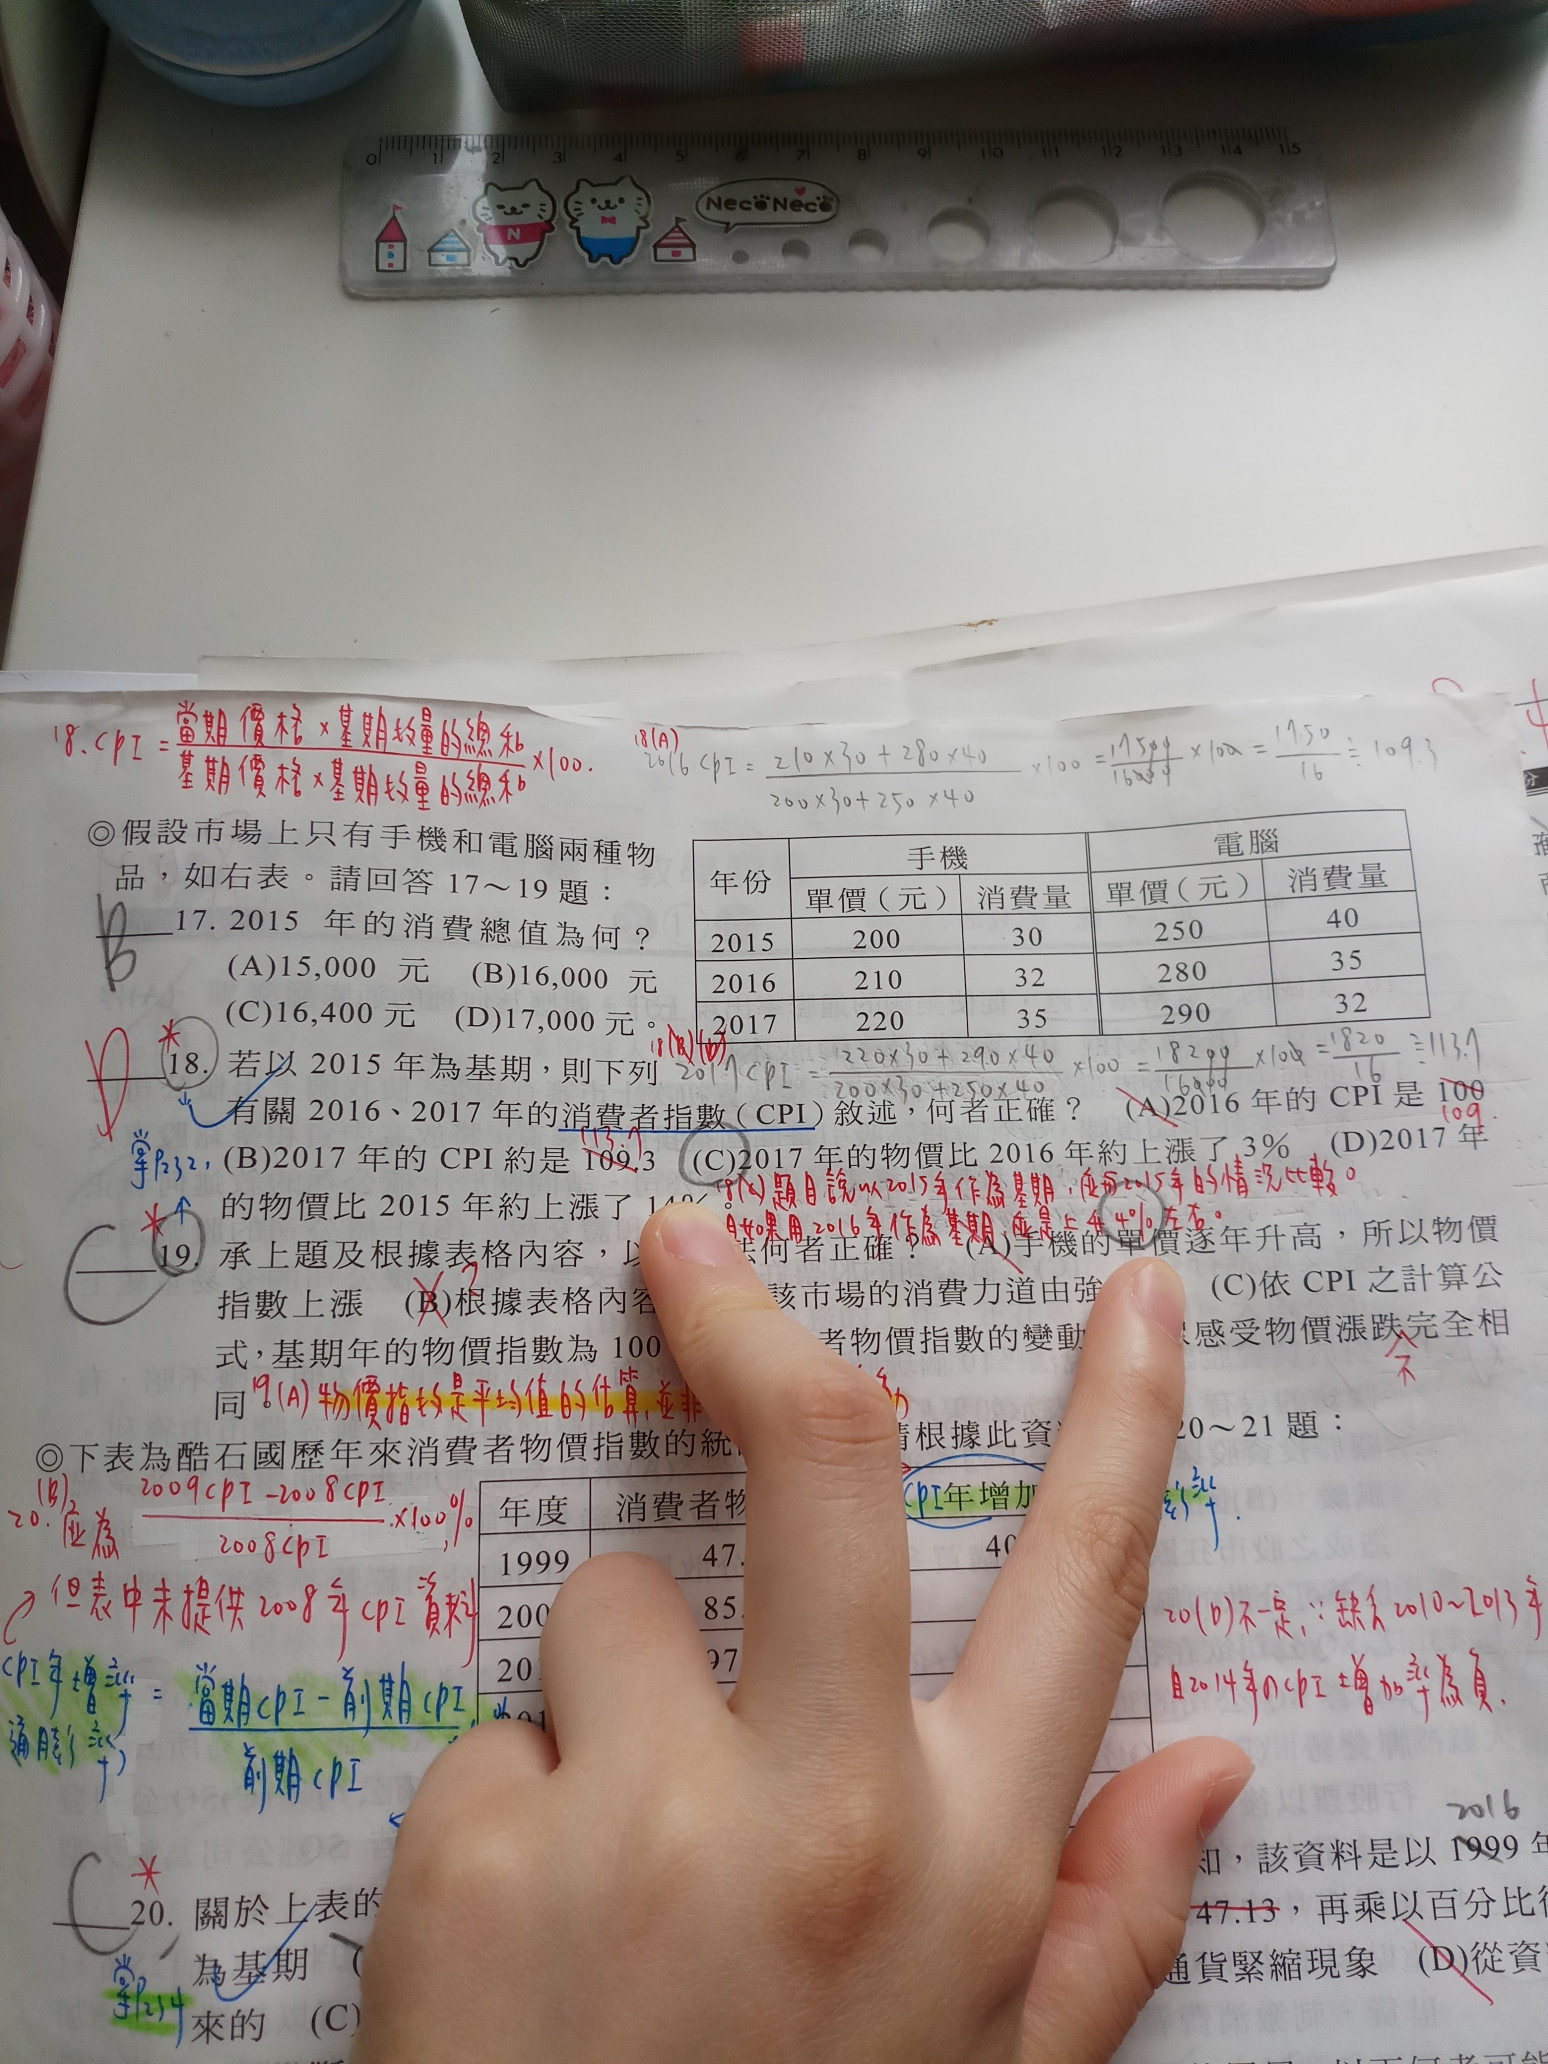 0 1 2 3 4 5 6 7 8 9 10 11 12 13 14 15
NecoNeco
N
18. CPI = 當期價格×基期數量的總和 / 基期價格×基期數量的總和 ×100.
18(A)
2016 CPI = 210×30+280×40 / 200×30+250×40 ×100 = 17500 / 16000 ×100 = 1750 / 16 ≒ 109.3
◎假設市場上只有手機和電腦兩種物
品，如右表。請回答 17～19 題：
年份 手機 電腦
單價（元） 消費量 單價（元） 消費量
2015 200 30 250 40
2016 210 32 280 35
2017 220 35 290 32
B 17. 2015 年的消費總值為何？
(A)15,000 元 (B)16,000 元
(C)16,400 元 (D)17,000 元。
18(B)(D)
2017 CPI = 220×30+290×40 / 200×30+250×40 ×100 = 18200 / 16000 ×100 = 1820 / 16 ≒ 113.7
D * 18. 若以 2015 年為基期，則下列
有關 2016、2017 年的消費者指數（CPI）敘述，何者正確？ (A)2016 年的 CPI 是 100
109.
113.7
掌P232, (B)2017 年的 CPI 約是 109.3 (C)2017 年的物價比 2016 年約上漲了 3% (D)2017 年
的物價比 2015 年約上漲了 14%。
18(C)題目說以2015年作為基期，應與2015年的情況比較。
且如果用2016年作為基期 應是上升4%左右。
C * 19. 承上題及根據表格內容，以 法何者正確？ (A)手機的單價逐年升高，所以物價
指數上漲 (B)根據表格內容 該市場的消費力道由強 (C)依 CPI 之計算公
?
式，基期年的物價指數為 100 者物價指數的變動 感受物價漲跌完全相
不
同。
19(A) 物價指數是平均值的估算,並非 動
◎下表為酷石國歷年來消費者物價指數的統 請根據此資 20～21 題：
(B)
20. 應為 2009CPI-2008CPI / 2008CPI ×100%,
但表中未提供2008年CPI資料
CPI年增率 = 當期CPI-前期CPI / 前期CPI
通膨率
年度 消費者物 CPI年增加 膨率.
1999 47. 40
200 85.
201 97
201
20(D)不一定,∵缺乏2010~2013年
且2014年的CPI增加率為負.
2016
知，該資料是以 1999 年
C * 20. 關於上表的 47.13，再乘以百分比
掌P234
為基期 ( 通貨緊縮現象 (D)從資
來的 (C)